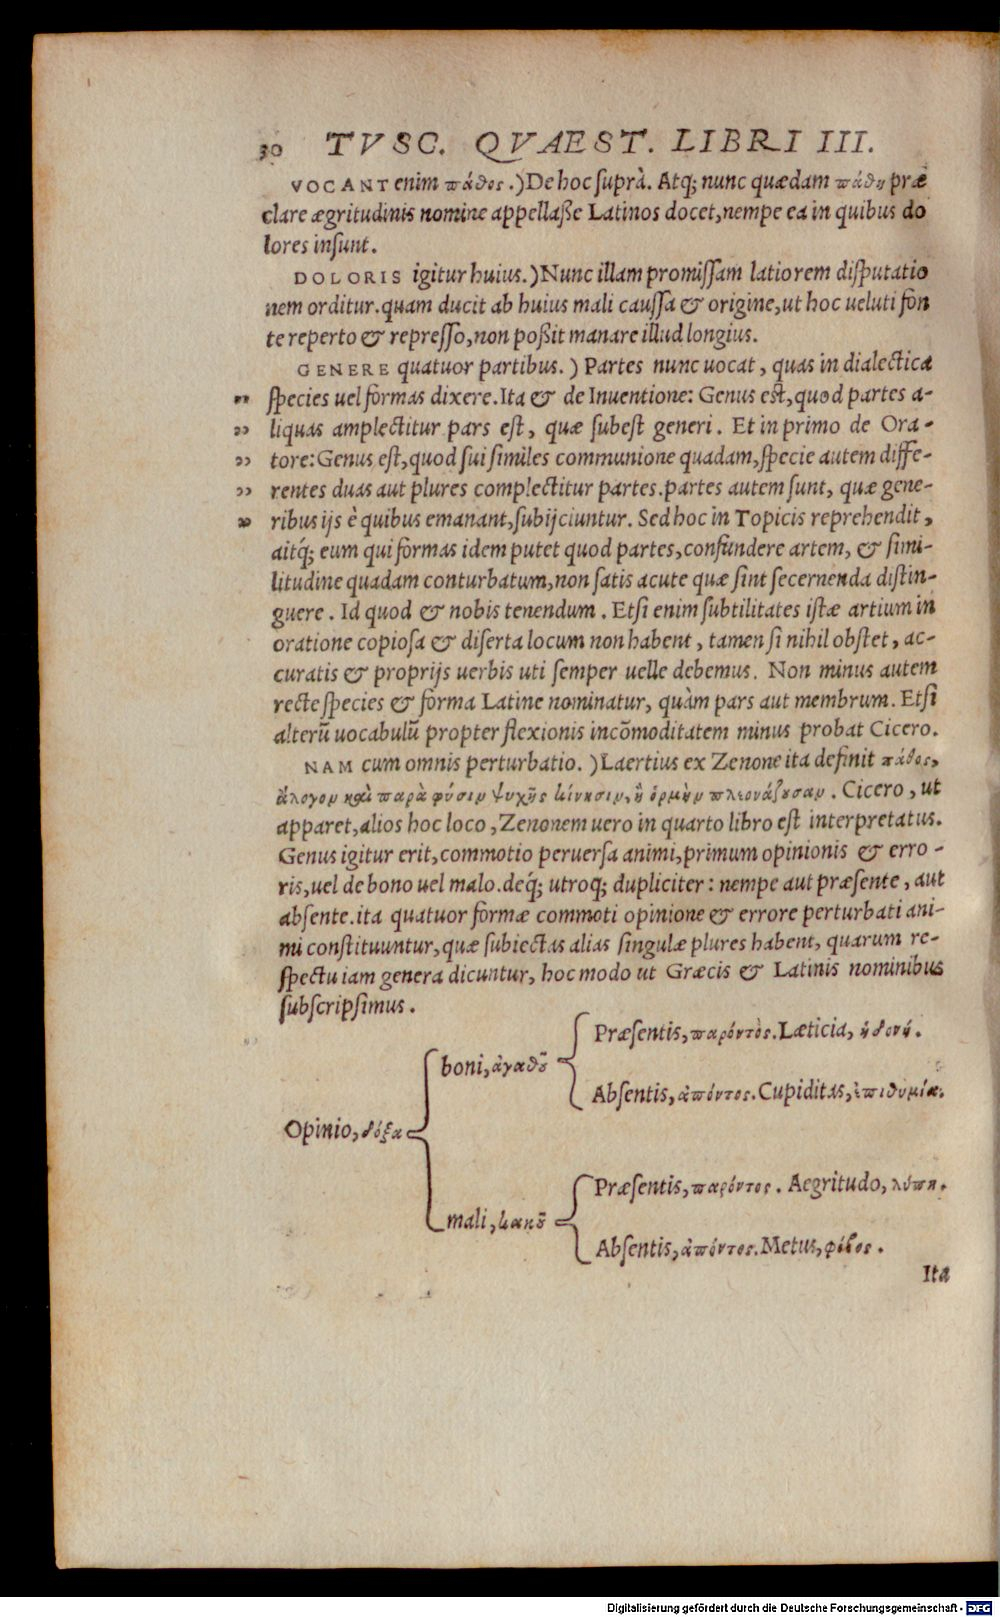 30 TVSC. QVAEST. LIBRI III.
VOCANT enim πάθος.) De hoc suprà. Atq; nunc quædam πάθη præ
clare ægritudinis nomine appellaße Latinos docet, nempe ea in quibus do
lores insunt.
DOLORIS igitur huius.) Nunc illam promissam latiorem disputatio
nem orditur. quam ducit ab huius mali caussa & origine, ut hoc ueluti fon
te reperto & represso, non poßit manare illud longius.
GENERE quatuor partibus.) Partes nunc uocat, quas in dialectica
„ species uel formas dixere. Ita & de Inuentione: Genus est, quod partes a-
„ liquas amplectitur pars est, quæ subest generi. Et in primo de Ora-
„ tore: Genus est, quod sui similes communione quadam, specie autem diffe-
„ rentes duas aut plures complectitur partes. partes autem sunt, quæ gene-
„ ribus ijs è quibus emanant, subijciuntur. Sed hoc in Topicis reprehendit,
aitq́; eum qui formas idem putet quod partes, confundere artem, & simi-
litudine quadam conturbatum, non satis acute quæ sint secernenda distin-
guere. Id quod & nobis tenendum. Etsi enim subtilitates istæ artium in
oratione copiosa & diserta locum non habent, tamen si nihil obstet, ac-
curatis & proprijs uerbis uti semper uelle debemus. Non minus autem
recte species & forma Latine nominatur, quàm pars aut membrum. Etsi
alterũ uocabulũ propter flexionis incõmoditatem minus probat Cicero.
NAM cum omnis perturbatio.) Laertius ex Zenone ita definit πάθος,
ἄλογον καὶ παρὰ φύσιν ψυχῆς κίνησιν, ἢ ὁρμὴν πλεονάζουσαν. Cicero, ut
apparet, alios hoc loco, Zenonem uero in quarto libro est interpretatus.
Genus igitur erit, commotio peruersa animi, primum opinionis & erro-
ris, uel de bono uel malo. deq́; utroq; dupliciter: nempe aut præsente, aut
absente. ita quatuor formæ commoti opinione & errore perturbati ani-
mi constituuntur, quæ subiectas alias singulæ plures habent, quarum re-
spectu iam genera dicuntur, hoc modo ut Græcis & Latinis nominibus
subscripsimus.
Præsentis, παρόντος. Læticia, ἡδονή.
boni, ἀγαθοῦ
Absentis, ἀπόντος. Cupiditas, ἐπιθυμία.
Opinio, δόξα
Præsentis, παρόντος. Aegritudo, λύπη.
mali, κακοῦ
Absentis, ἀπόντος. Metus, φόβος.
Ita
Digitalisierung gefördert durch die Deutsche Forschungsgemeinschaft - DFG